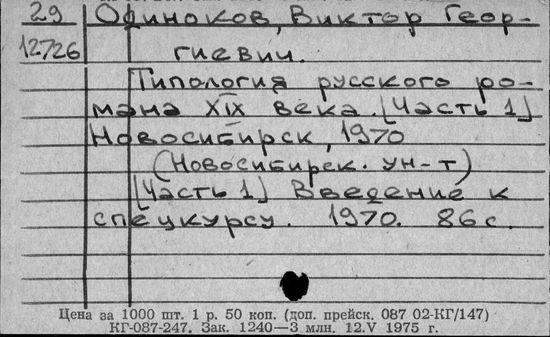 29 Одиноков, Виктор Геор-
12726 гиевич.
Типология русского ро-
мана XIX века. [Часть 1]
Новосибирск, 1970
(Новосибирск. ун-т)
[Часть 1] Введение к
спецкурсу. 1970. 86 с.
Цена за 1000 шт. 1 р. 50 коп. (доп. прейск. 087 02-КГ/147)
КГ-087-247. Зак. 1240—3 млн. 12.V 1975 г.